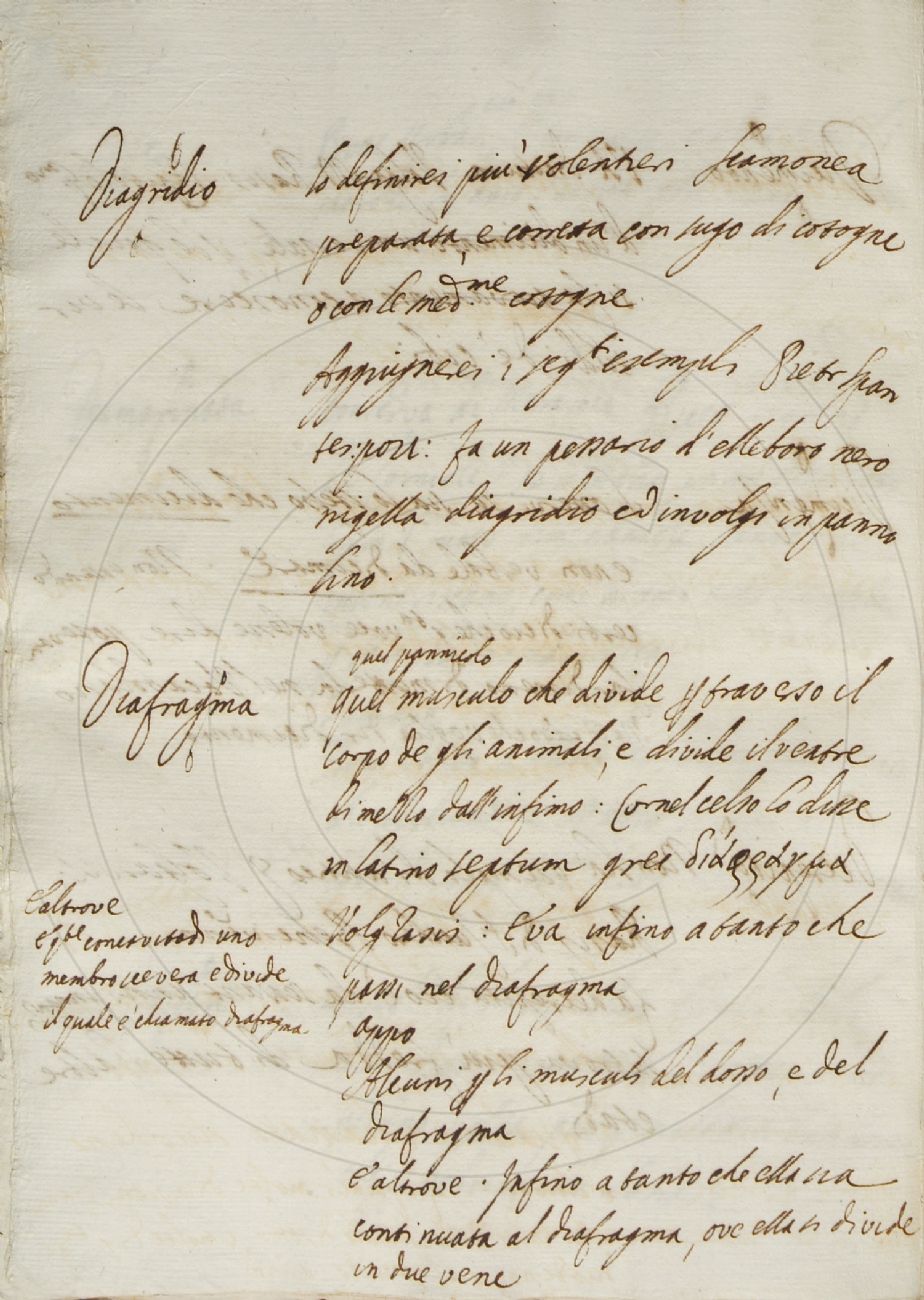 Diagridio
Io definirei più volentieri scamonea
preparata, e corretta con sugo di cotogne
o con le med.me cotogne
Aggiugnerei i seg.ti esempli Pietr Span
tes: pou: fa un pessario d'elleboro nero
nigella diagridio ed involgi in panno
lino.
Diafragma
quel pannicolo
quel musculo che divide p traverso il
corpo de gli animali, e divide il ventre
di mezzo dall'infimo: Cornel celso lo disse
in latino septum grec διάφραγμα
Volg Rasis: E va infino a tanto che
passi nel diafragma
E altrove
membro severa e divide
il quale è chiamato diafragma
appo
Alcuni p li musculi del dosso, e del
diafragma
E altrove. Infino a tanto che ella sia
continuata al diafragma, ove ella si divide
in due vene